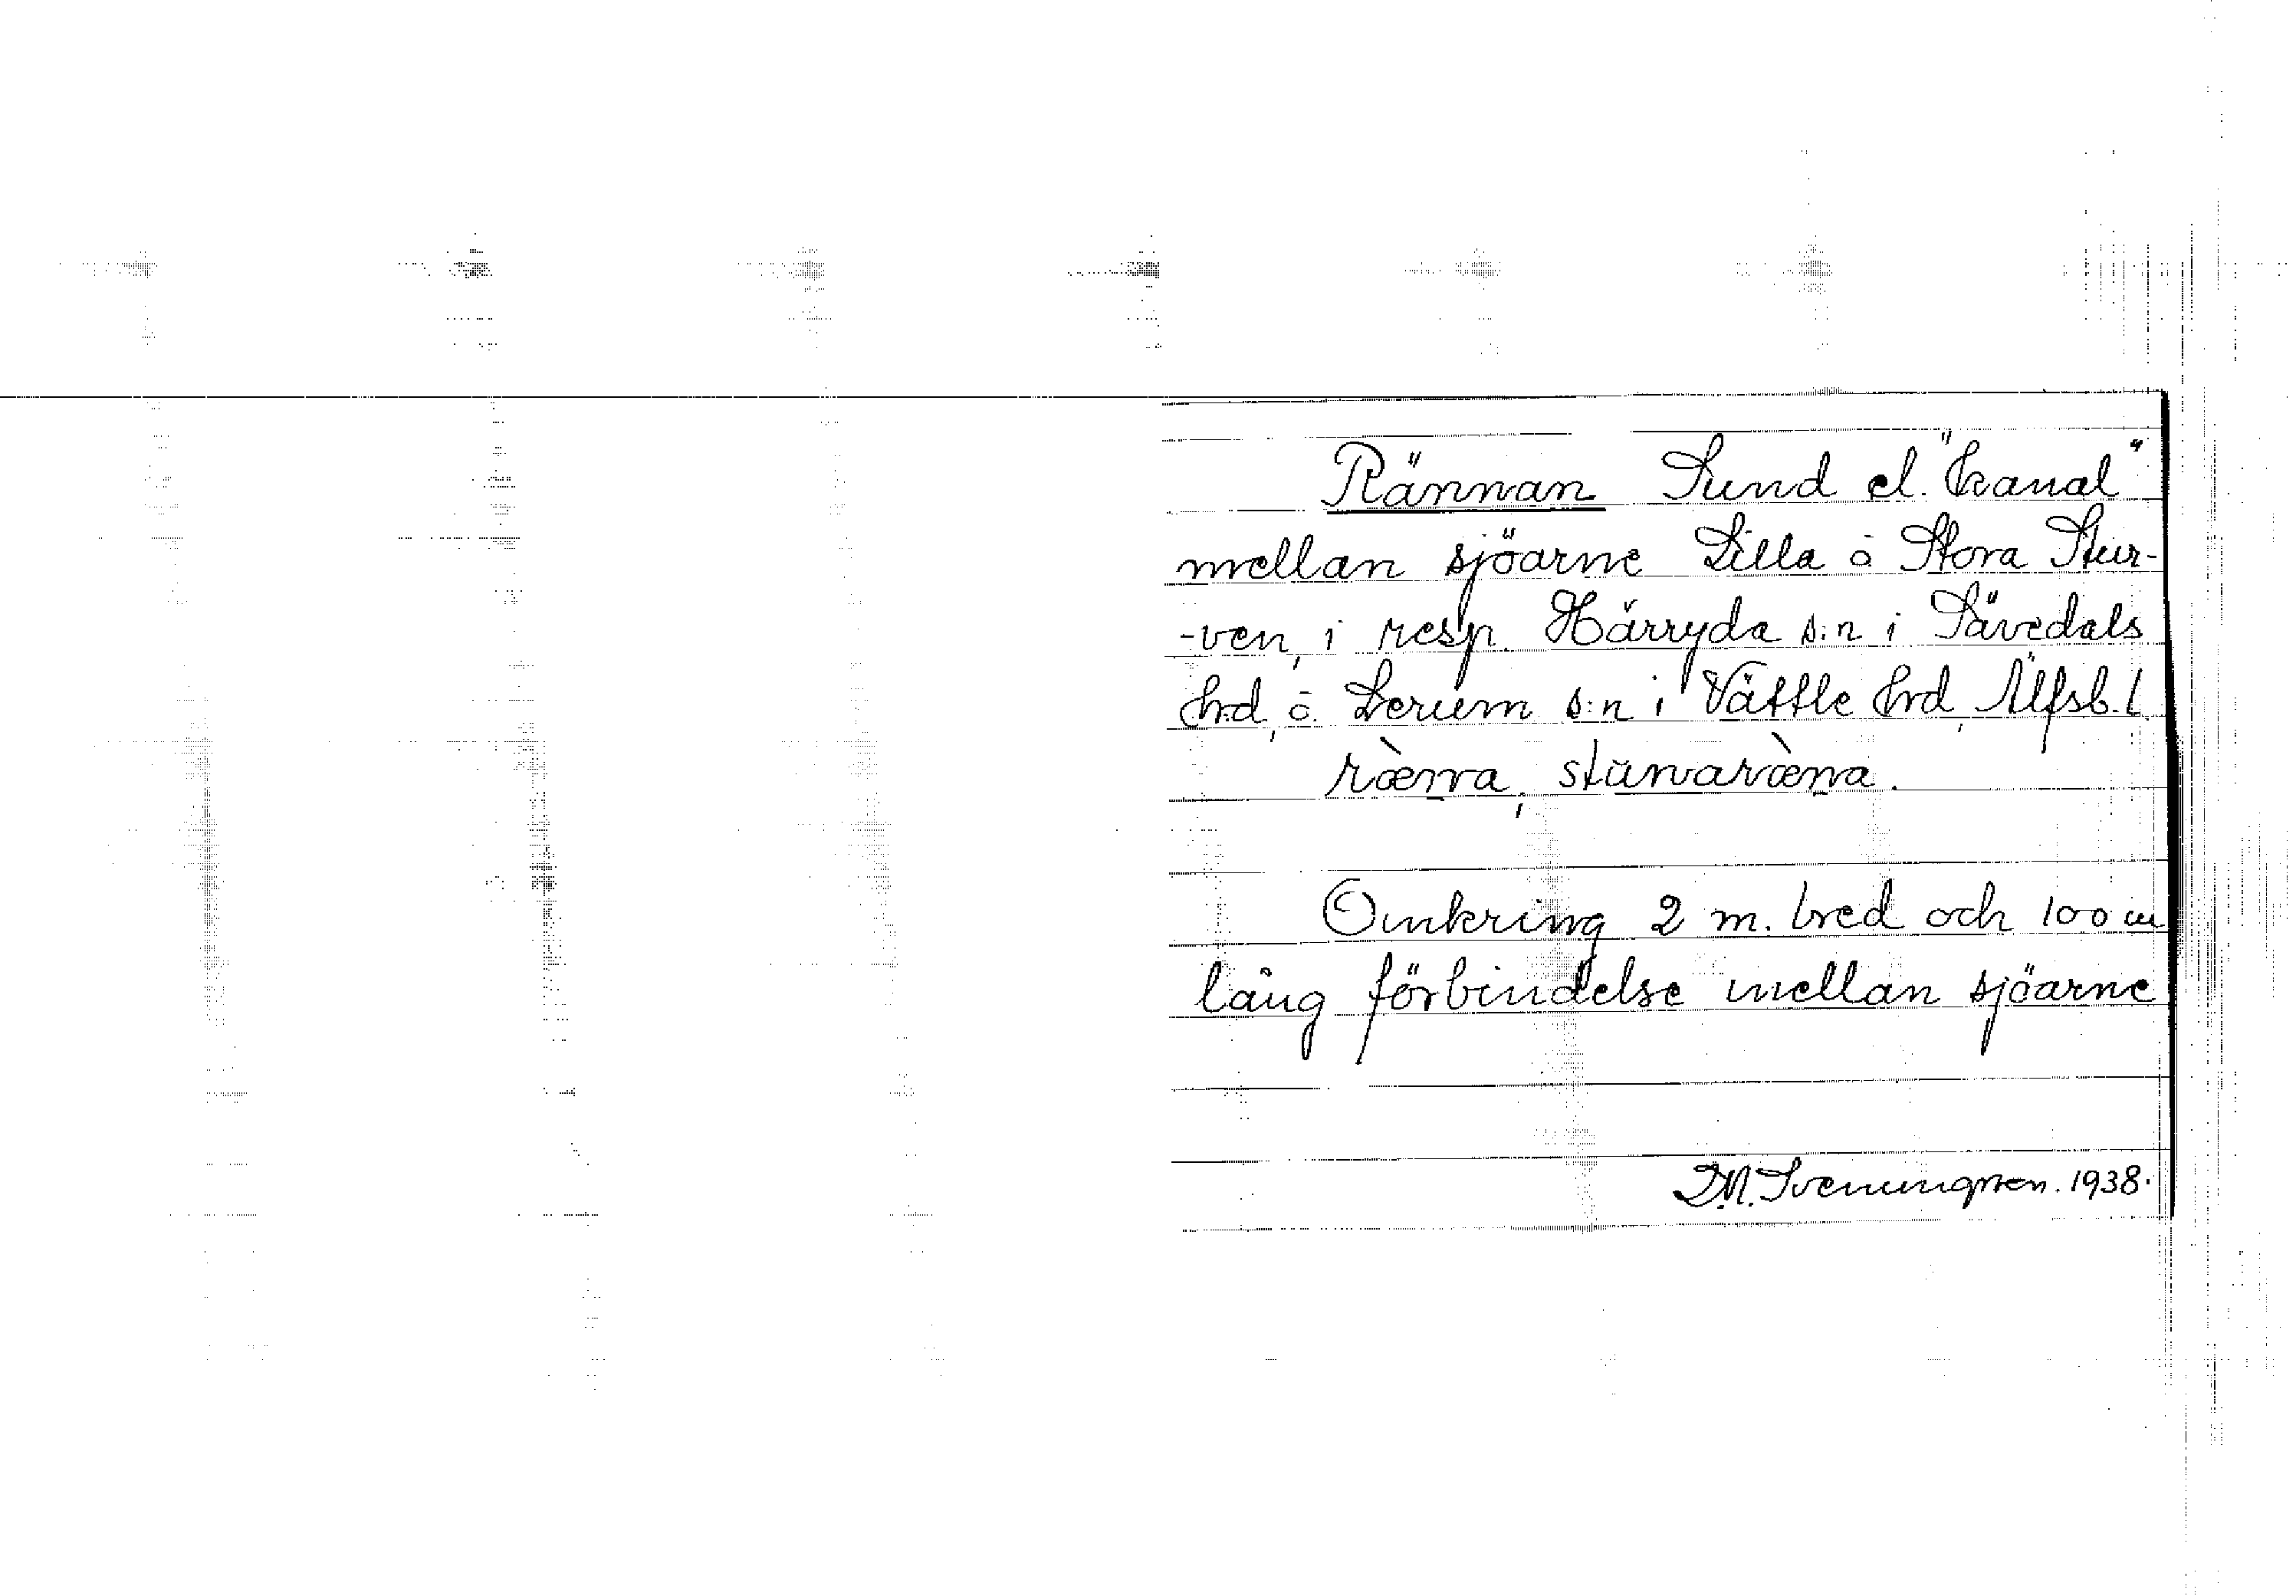 Rännan Sund el. "kanal"
mellan sjöarne Lilla o Stora Stur-
-ven, i resp. Härryda s:n i Sävedals
hrd, o. Lerum s:n i Vättle hrd, Älfsb. l.
ræ̀nna, sturvaræ̀nna.
Omkring 2 m. bred och 100 m
lång förbindelse mellan sjöarne
D.M. Svenungsson. 1938.